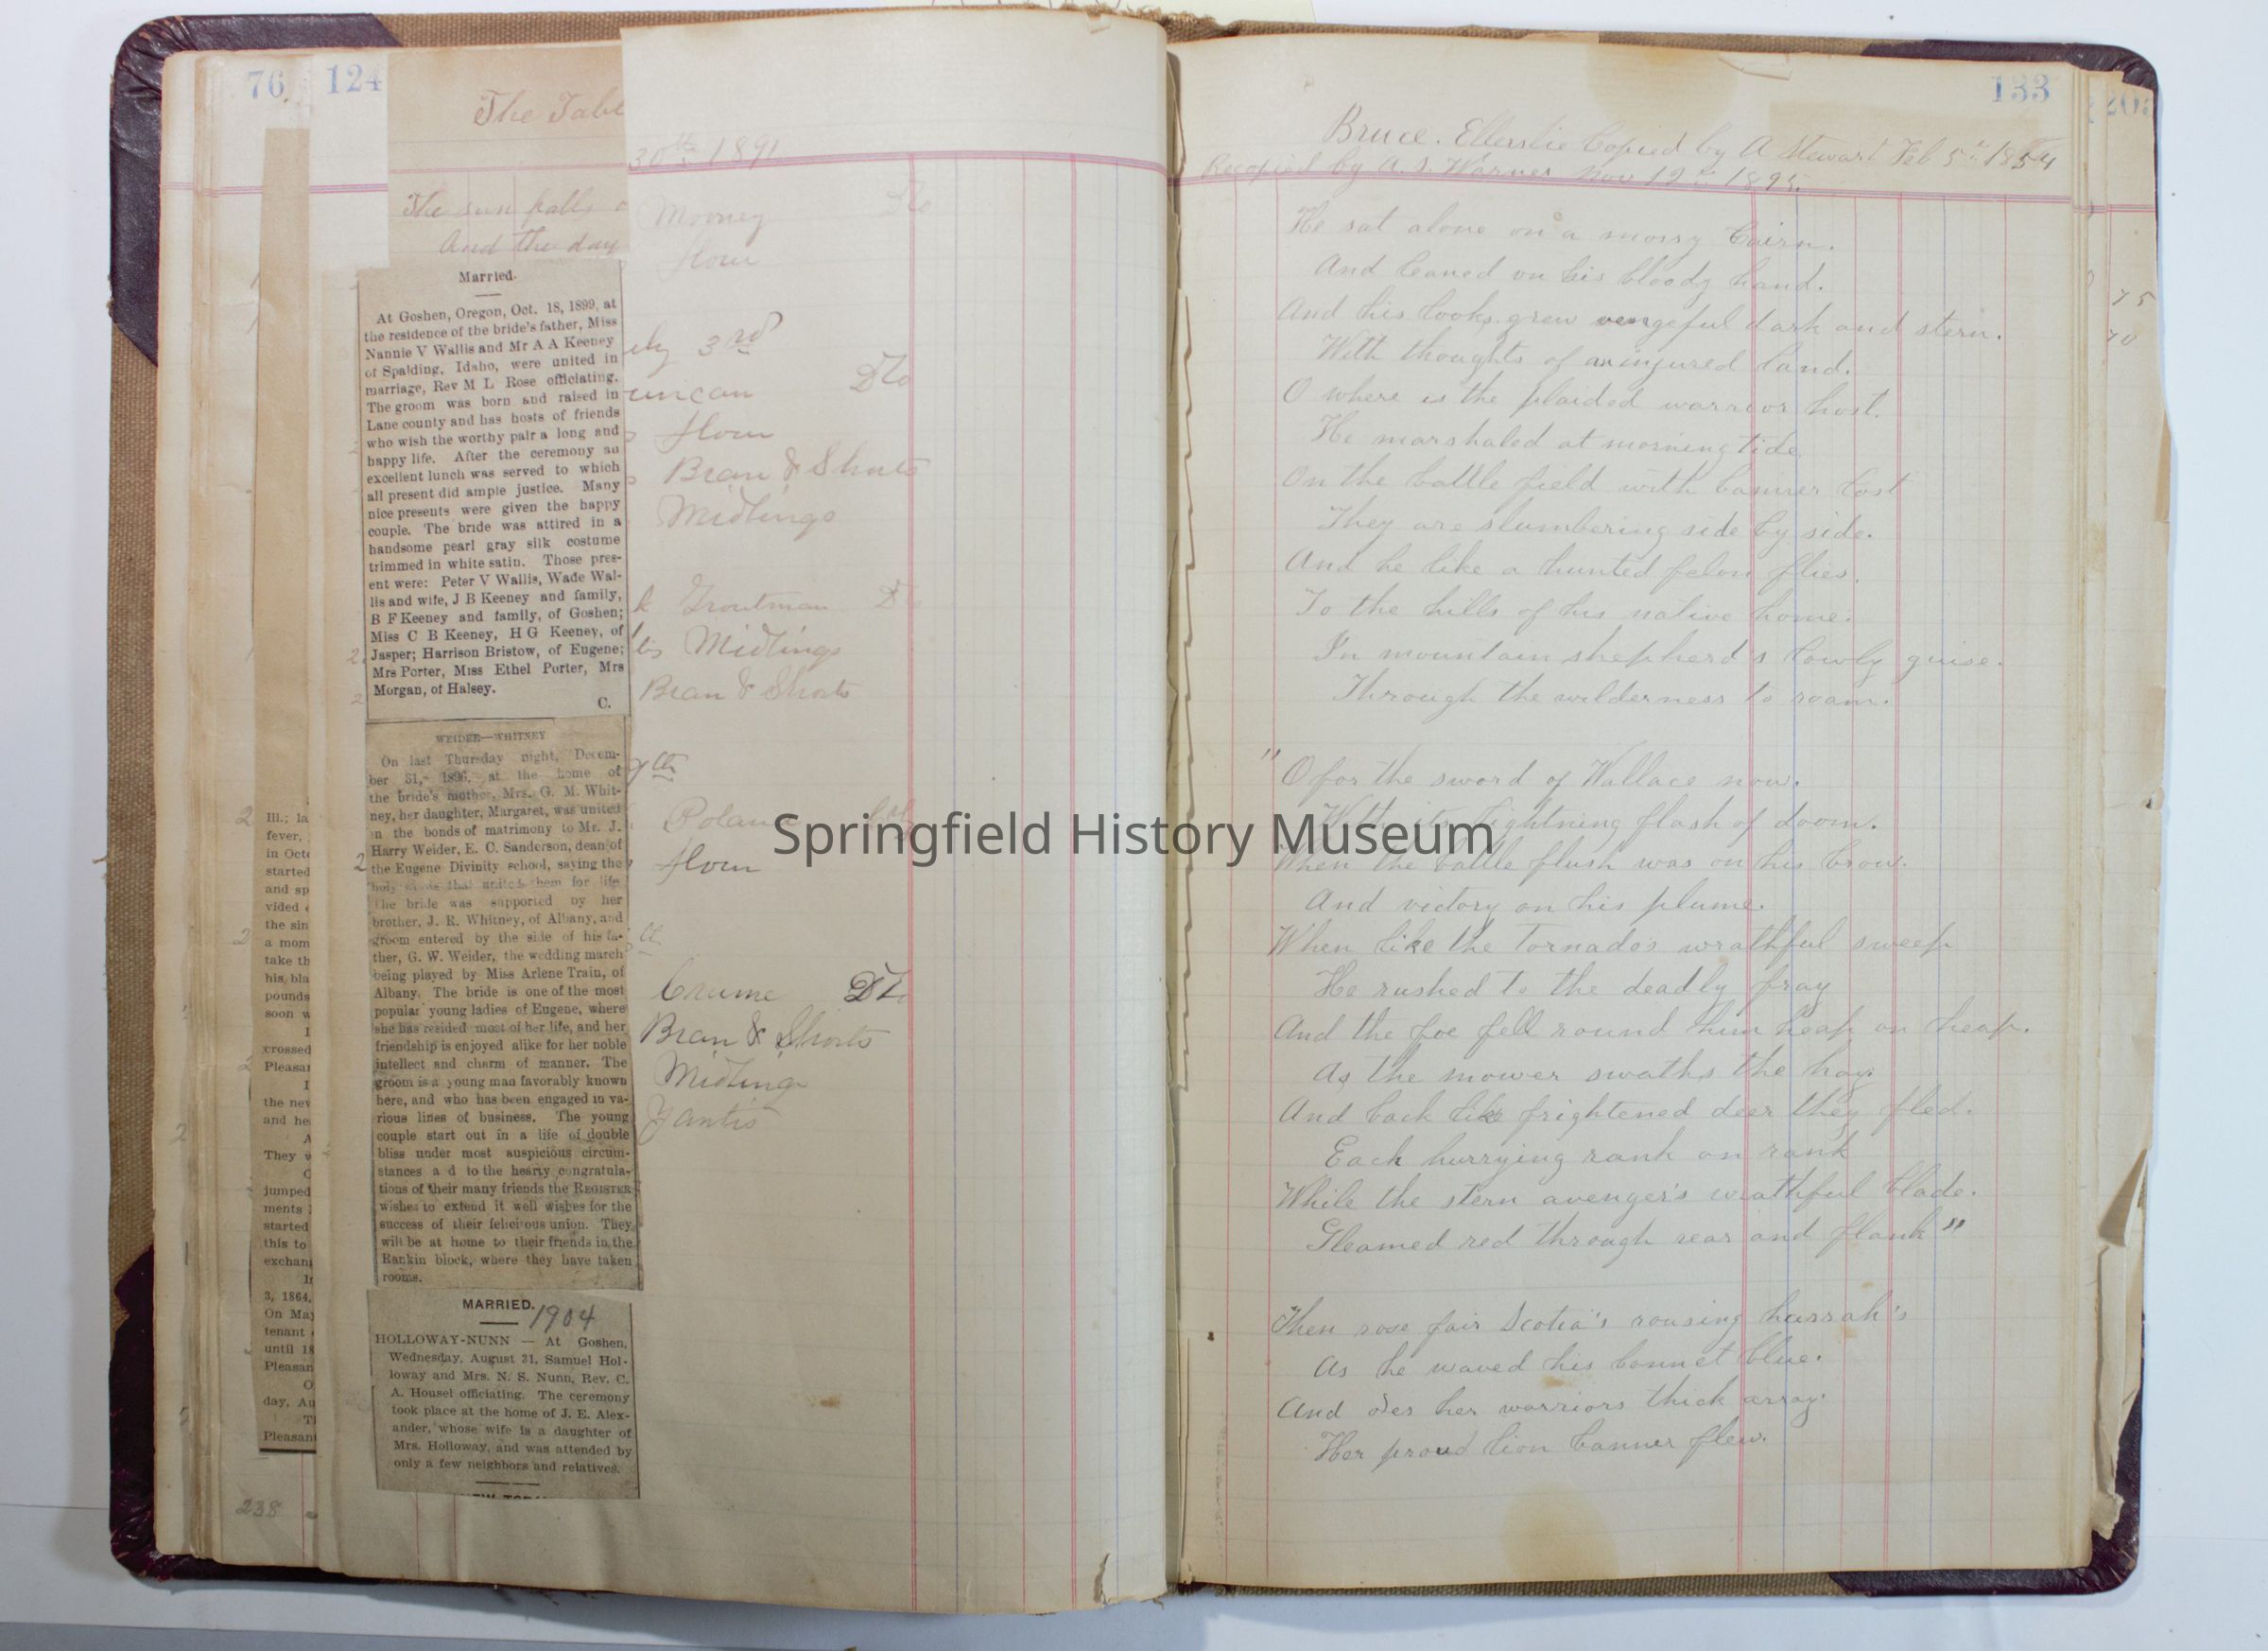 76
124
The Tabl
The sun falls
And the day
Married.
At Goshen, Oregon, Oct. 18, 1899, at
the residence of the bride's father, Miss
Nannie V Wallis and Mr A A Keeney
of Spalding, Idaho, were united in
marriage, Rev M L Rose officiating.
The groom was born and raised in
Lane county and has hosts of friends
who wish the worthy pair a long and
happy life. After the ceremony an
excellent lunch was served to which
all present did ample justice. Many
nice presents were given the happy
couple. The bride was attired in a
handsome pearl gray silk costume
trimmed in white satin. Those pres-
ent were: Peter V Wallis, Wade Wal-
lis and wife, J B Keeney and family,
B F Keeney and family, of Goshen;
Miss C B Keeney, H G Keeney, of
Jasper; Harrison Bristow, of Eugene;
Mrs Porter, Miss Ethel Porter, Mrs
Morgan, of Halsey.
C.
WEIDER—WHITNEY
On last Thursday night, Decem-
ber 31, 1896, at the home of
the bride's mother, Mrs. G. M. Whit-
ney, her daughter, Margaret, was united
in the bonds of matrimony to Mr. J.
Harry Weider, E. C. Sanderson, dean of
the Eugene Divinity school, saying the
holy words that united them for life
The bride was supported by her
brother, J. R. Whitney, of Albany, and
groom entered by the side of his fa-
ther, G. W. Weider, the wedding march
being played by Miss Arlene Train, of
Albany. The bride is one of the most
popular young ladies of Eugene, where
she has resided most of her life, and her
friendship is enjoyed alike for her noble
intellect and charm of manner. The
groom is a young man favorably known
here, and who has been engaged in va-
rious lines of business. The young
couple start out in a life of double
bliss under most auspicious circum-
stances a d to the hearty congratula-
tions of their many friends the REGISTER
wishes to extend it well wishes for the
success of their felicitous union. They
will be at home to their friends in the
Rankin block, where they have taken
rooms.
MARRIED. 1904
HOLLOWAY-NUNN — At Goshen,
Wednesday, August 31, Samuel Hol-
loway and Mrs. N. S. Nunn, Rev. C.
A. Housel officiating. The ceremony
took place at the home of J. E. Alex-
ander, whose wife is a daughter of
Mrs. Holloway, and was attended by
only a few neighbors and relatives.
Ill.; la
fever,
in Octo
started
and sp
vided
the sin
a mom
take th
his bla
pounds
soon w
crossed
Pleasan
the nev
and he
They w
jumped
ments
started
this to
exchan
3, 1864,
On May
tenant
until 18
Pleasan
day, Au
Pleasan
238
30th 1891
Mooney
flour
uly 3rd
uncan Dto
flour
Bran & Shorts
Midlings
Troutman
Midlings
Bran & Shorts
9th
Poland
flour
Crume Dto
Bran & Shorts
Midlings
Yantis
Springfield History Museum
133
Bruce. Ellerslie Copied by A Stewart Feb 5th 1854
Recopied by A. S. Warner Nov 19th 1895.
He sat alone on a mossy Cairn.
And leaned on his bloody hand.
And his looks grew vengeful dark and stern.
With thoughts of an injured land.
O where is the plaided warrior host.
He marshaled at morning tide
On the battle field with banner lost
They are slumbering side by side.
And he like a hunted felon flies.
To the hills of his native home.
In mountain shepherd's lowly guise.
Through the wilderness to roam.
"O for the sword of Wallace now.
With its lightning flash of doom.
When the battle flush was on his brow.
And victory on his plume.
When like the Tornado's wrathful sweep
He rushed to the deadly fray
And the foe fell round him heap on heap.
As the mower swaths the hay.
And back like frightened deer they fled.
Each hurrying rank on rank
While the stern avenger's wrathful blade.
Gleamed red through rear and flank"
Then rose fair Scotia's rousing hurrah's
As he waved his bonnet blue.
And o'er her warriors thick array.
Her proud lion banner flew.
75
70